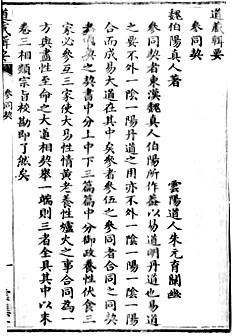 道藏輯要
參同契
魏伯陽真人著
雲陽道人朱元育闡幽
參同契者東漢魏真人伯陽所作蓋以易道明丹道也易道
之要不外一陰一陽丹道之用亦不外一陰一陽一陰一陽
合而成易大道在其中矣參者參伍之參同者合同之同契
者相契之契書中分上中下三篇篇中分御政養性伏食三
家必參互三家使大易性情黃老養性爐火之事合同為一
方與盡性至命之大道相契舉一端則三者全具其中以末
卷三相類宗旨校勘即了然矣
參同契